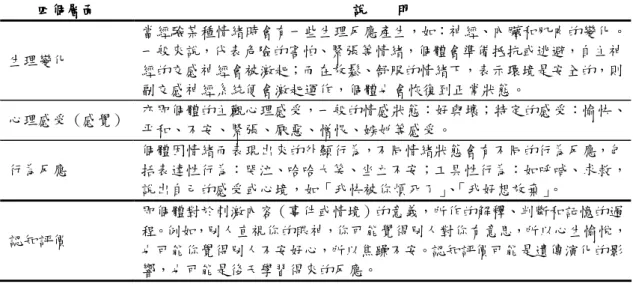 四個層面 說 明
生理變化
當經驗某種情緒時會有一些生理反應產生，如：神經、內臟和肌肉的變化。
一般來說，代表危險的害怕、緊張等情緒，個體會準備抵抗或逃避，自主神
經的交感神經會被激起；而在放鬆、舒服的情緒下，表示環境是安全的，則
副交感神經系統便會激起運作，個體也會恢復到正常狀態。
心理感受（感覺）
亦即個體的主觀心理感受，一般的情感狀態：好與壞；特定的感受：愉快、
平和、不安、緊張、厭惡、憎恨、嫉妒等感受。
行為反應
個體因情緒而表現出來的外顯行為，不同情緒狀態會有不同的行為反應，包
括表達性行為：哭泣、哈哈大笑、坐立不安；工具性行為：如呼喊、求救，
說出自己的感受或心境，如「我快被你煩死了」、「我好想放棄」。
認知評價
即個體對於刺激內容（事件或情境）的意義，所作的解釋、判斷和記憶的過
程。例如，別人直視你的眼神，你可能覺得別人對你有意思，所以心生愉悅，
也可能你覺得別人不安好心，所以焦躁不安。認知評價可能是遺傳演化的影
響，也可能是後天學習得來的反應。